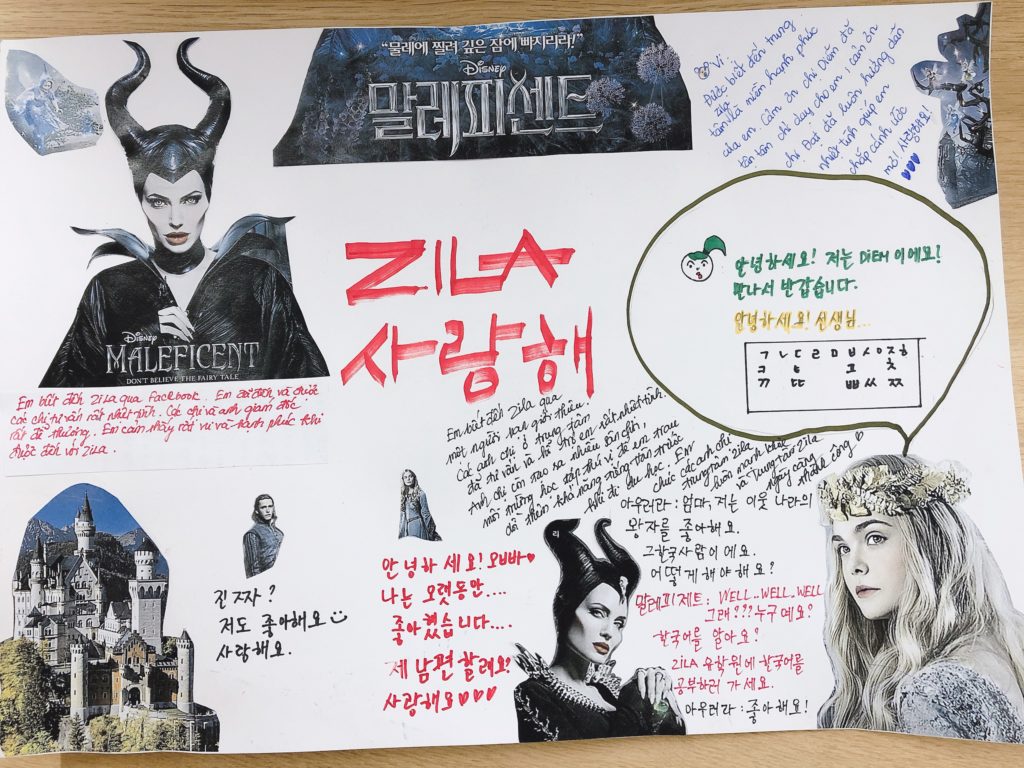 "물레에 찔려 깊은 잠에 빠지리라!"
Disney
말레피센트
Vi
Được biết đến trung
tâm Zila là niềm hạnh phúc
của em. Cảm ơn chị Diễm đã
tận tâm chỉ dạy cho em, cảm ơn
chị Đài đã luôn hướng dẫn
nhiệt tình giúp em
chắp cánh ước
mơ! 사랑해요!
Disney
MALEFICENT
DON'T BELIEVE THE FAIRY TALE
ZILA
사랑해
안녕하세요! 저는 DIEM 이에요!
만나서 반갑습니다.
안녕하세요! 선생님...
ㄱ ㄴ ㄷ ㄹ ㅁ ㅂ ㅅ ㅇ ㅈ ㅎ
ㅋ ㅌ ㅍ ㅊ
ㄲ ㄸ ㅃ ㅆ ㅉ
Em biết đến ZILA qua Facebook. Em đã đến và được
các chị tư vấn rất nhiệt tình. Các chị và anh giám đốc
rất dễ thương. Em cảm thấy rất vui và hạnh phúc khi
được đến với ZILA.
Em biết đến Zila qua
một người bạn giới thiệu.
Các anh chị ở trung tâm
đã tư vấn và hỗ trợ em rất nhiệt tình.
Anh chị còn tạo ra nhiều sân chơi,
môi trường học tập thú vị để em trau
dồi thêm khả năng tiếng Hàn trước
khi đi du học. Em
chúc các anh chị
trung tâm Zila
luôn mạnh khỏe
và trung tâm Zila
ngày càng
thành công
진짜?
저도 좋아해요
사랑해요.
안녕하세요! 오빠
나는 오랫동안....
좋아했습니다....
제 남편 할래요?
사랑해요
아우러라 : 엄마, 저는 이웃 나라의
왕자를 좋아해요.
그 한국사람이에요.
어떻게 해야 해요?
말레피젠트 : WELL-WELL-WELL
그래??? 누구예요?
한국어를 알아요?
ZILA 유학원에 한국어를
공부하러 가세요.
아우러라 : 좋아해요!